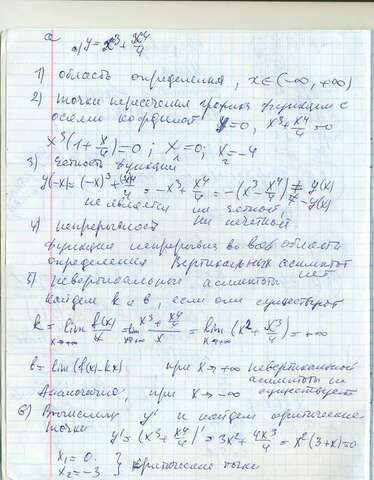 а) y = x³ + x⁴/4
1) область определения, x ∈ (-∞, +∞)
2) точки пересечения графика функции с
осями координат y=0, x³ + x⁴/4 = 0
x³(1 + x/4) = 0; x₁ = 0; x₂ = -4
3) чётность функции
y(-x) = (-x)³ + (-x)⁴/4 = -x³ + x⁴/4 = -(x³ - x⁴/4) ≠ y(x) ≠ -y(x)
не является ни чётной, ни нечётной
4) непрерывность
функция непрерывна во всей области
определения Вертикальных асимптот нет
5) Невертикальные асимптоты
найдем k и b, если они существуют
k = lim x→+∞ f(x)/x = lim x→+∞ (x³ + x⁴/4)/x = lim x→+∞ (x² + x³/4) = +∞
b = lim (f(x) - kx) при x → +∞ невертикальной
асимптоты не существует
Аналогично, при x → -∞
6) Вычислим y' и найдем критические
точки
y' = (x³ + x⁴/4)' = 3x² + 4x³/4 = x²(3+x) = 0
x₁ = 0
x₂ = -3 } критические точки